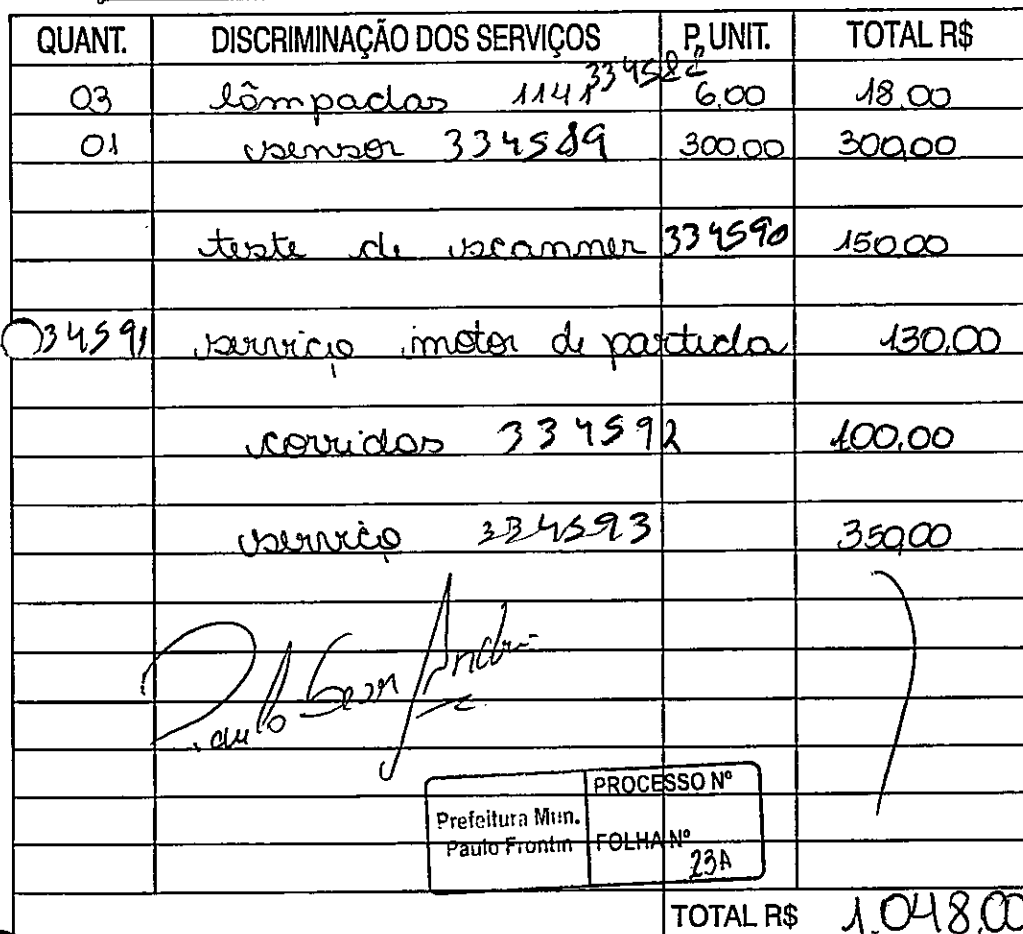 QUANT. DISCRIMINAÇÃO DOS SERVIÇOS P. UNIT. TOTAL R$
03 lâmpadas 1141 334588 6,00 18,00
01 sensor 334589 300,00 300,00
teste de scanner 334590 150,00
334591 serviço motor de partida 130,00
corridas 334592 100,00
serviço 334593 350,00
Paulo Jean André
PROCESSO Nº
Prefeitura Mun.
Paulo Frontin FOLHA Nº
23A
TOTAL R$ 1.048,00